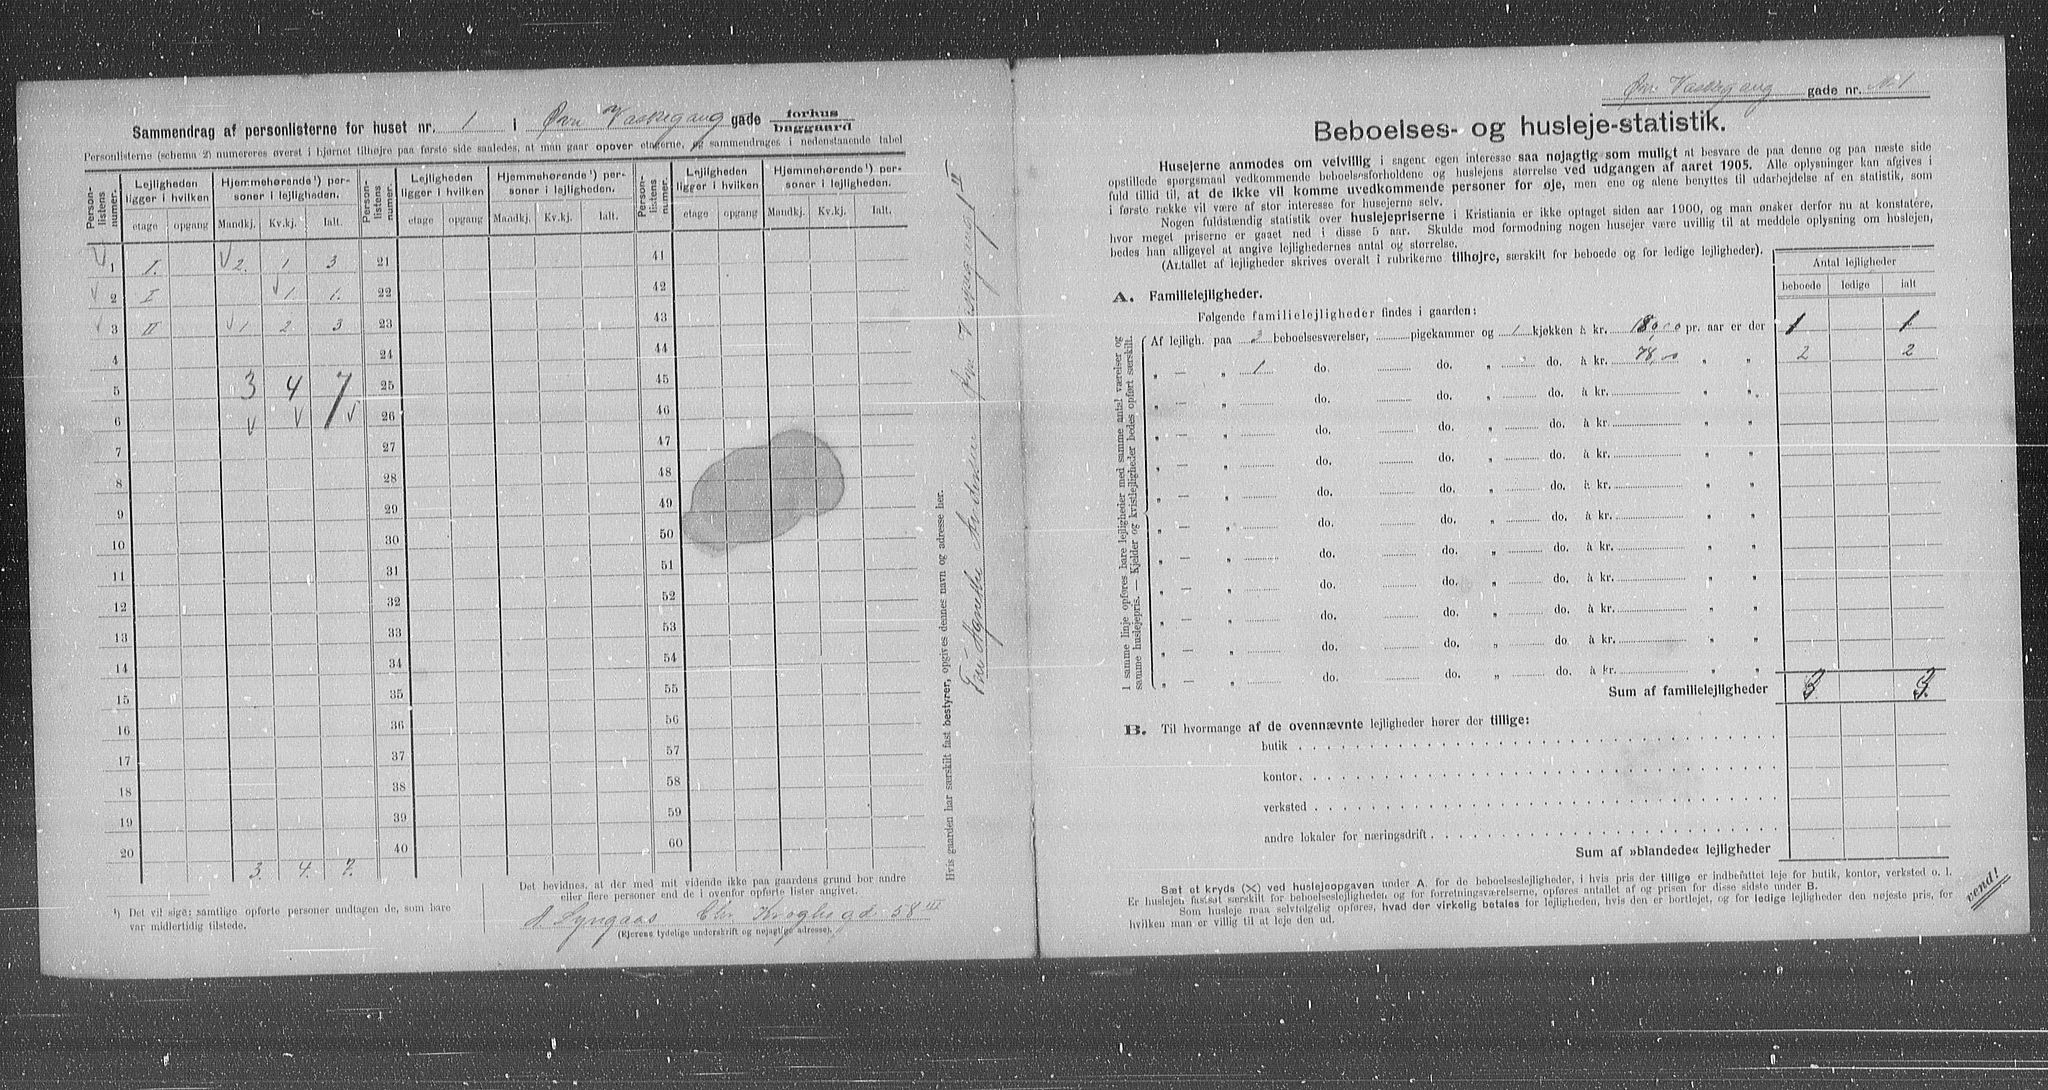 Sammendrag af personlisterne for huset nr. 1 i Øvre Vaskegang gade forhus baggaard
Personlisterne (schema 2) numereres øverst i hjørnet tilhøjre paa første side saaledes, at man gaar opover etagerne, og sammendrages i nedenstaaende tabel
Person-listens numer. Lejligheden ligger i hvilken Hjemmehørende¹) personer i lejligheden. Person-listens numer. Lejligheden ligger i hvilken Hjemmehørende¹) personer i lejligheden. Person-listens numer. Lejligheden ligger i hvilken Hjemmehørende¹) personer i lejligheden.
etage opgang Mandkj. Kv.kj. Ialt. etage opgang Mandkj. Kv.kj. Ialt. etage opgang Mandkj. Kv.kj. Ialt.
1 I. 2. 1 3 21 41
2 I 1 1. 22 42
3 II 1 2 3 23 43
4 24 44
5 3 4 7 25 45
6 26 46
7 27 47
8 28 48
9 29 49
10 30 50
11 31 51
12 32 52
13 33 53
14 34 54
15 35 55
16 36 56
17 37 57
18 38 58
19 39 59
20 3. 4. 7. 40 60
¹) Det vil sige: samtlige opførte personer undtagen de, som bare
var midlertidig tilstede.
Det bevidnes, at der med mit vidende ikke paa gaardens grund bor andre
eller flere personer end de i ovenfor opførte lister angivet.
Chr Kroghs gd 58 III
(Ejerens tydelige underskrift og nøjagtige adresse).
Hvis gaarden har særskilt fast bestyrer, opgives dennes navn og adresse her.
Andersen Øvre Vaskegang 1 II
Øvre Vaskegang gade nr. No 1
Beboelses- og husleje-statistik.
Husejerne anmodes om velvillig i sagens egen interesse saa nøjagtig som muligt at besvare de paa denne og paa næste side
opstillede spørgsmaal vedkommende beboelsesforholdene og huslejens størrelse ved udgangen af aaret 1905. Alle oplysninger kan afgives i
fuld tillid til, at de ikke vil komme uvedkommende personer for øje, men ene og alene benyttes til udarbejdelse af en statistik, som
i første række vil være af stor interesse for husejerne selv.
Nogen fuldstændig statistik over huslejepriserne i Kristiania er ikke optaget siden aar 1900, og man ønsker derfor nu at konstatere,
hvor meget priserne er gaaet ned i disse 5 aar. Skulde mod formodning nogen husejer være uvillig til at meddele oplysning om huslejen,
bedes han alligevel at angive lejlighedernes antal og størrelse.
(Antallet af lejligheder skrives overalt i rubrikerne tilhøjre, særskilt for beboede og for ledige lejligheder).
Antal lejligheder
beboede ledige ialt
A. Familielejligheder.
Følgende familielejligheder findes i gaarden:
I samme linje opføres bare lejligheder med samme antal værelser og
samme huslejepris. — Kjelder og kvistlejligheder bedes opført særskilt.
Af lejligh. paa beboelsesværelser, pigekammer og 1 kjøkken à kr. pr. aar er der 1 1
„ — „ 1 do. do. „ do. à kr. 78,00 „ „ 2 2
„ — „ do. do. „ do. à kr. „ „
„ — „ do. do. „ do. à kr. „ „
„ — „ do. do. „ do. à kr. „ „
„ — „ do. do. „ do. à kr. „ „
„ — „ do. do. „ do. à kr. „ „
„ — „ do. do. „ do. à kr. „ „
„ — „ do. do. „ do. à kr. „ „
„ — „ do. do. „ do. à kr. „ „
„ — „ do. do. „ do. à kr. „ „
„ — „ do. do. „ do. à kr. „ „
Sum af familielejligheder 3 3.
B. Til hvormange af de ovennævnte lejligheder hører der tillige:
butik
kontor
verksted
andre lokaler for næringsdrift
Sum af »blandede« lejligheder
Sæt et kryds (X) ved huslejeopgaven under A. for de beboelseslejligheder, i hvis pris der tillige er indbefattet leje for butik, kontor, verksted o. l.
Er huslejen fastsat særskilt for beboelseslejligheden og for forretningsværelserne, opføres antallet af og prisen for disse sidste under B.
Som husleje maa selvfølgelig opføres, hvad der virkelig betales for lejligheden, hvis den er bortlejet, og for ledige lejligheder den nøjeste pris, for
hvilken man er villig til at leje den ud.
vend!